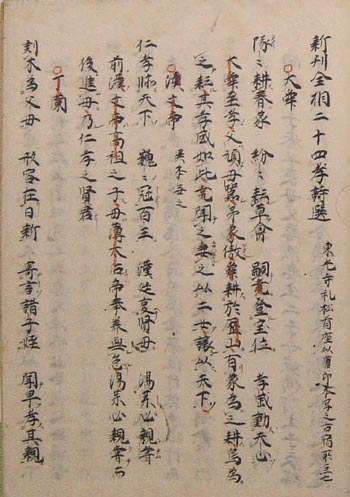 新刊全相二十四孝詩選
大舜
隊〻耕春象 紛〻耘草禽 嗣堯登宝位 孝感動天心
大舜至孝父頑母嚚弟象傲舜耕於歴山有象為之耕鳥為
之耘其孝感如此堯聞之妻之以二女譲以天下
漢文帝
仁孝臨天下 巍〻冠百王 漢廷事賢母 湯薬必親嘗
前漢文帝高祖之子母薄太后帝奉養無怠湯薬必親嘗而
後進母乃仁孝之賢君
丁蘭
刻木為父母 形容在日新 寄言諸子姪 聞早孝其親